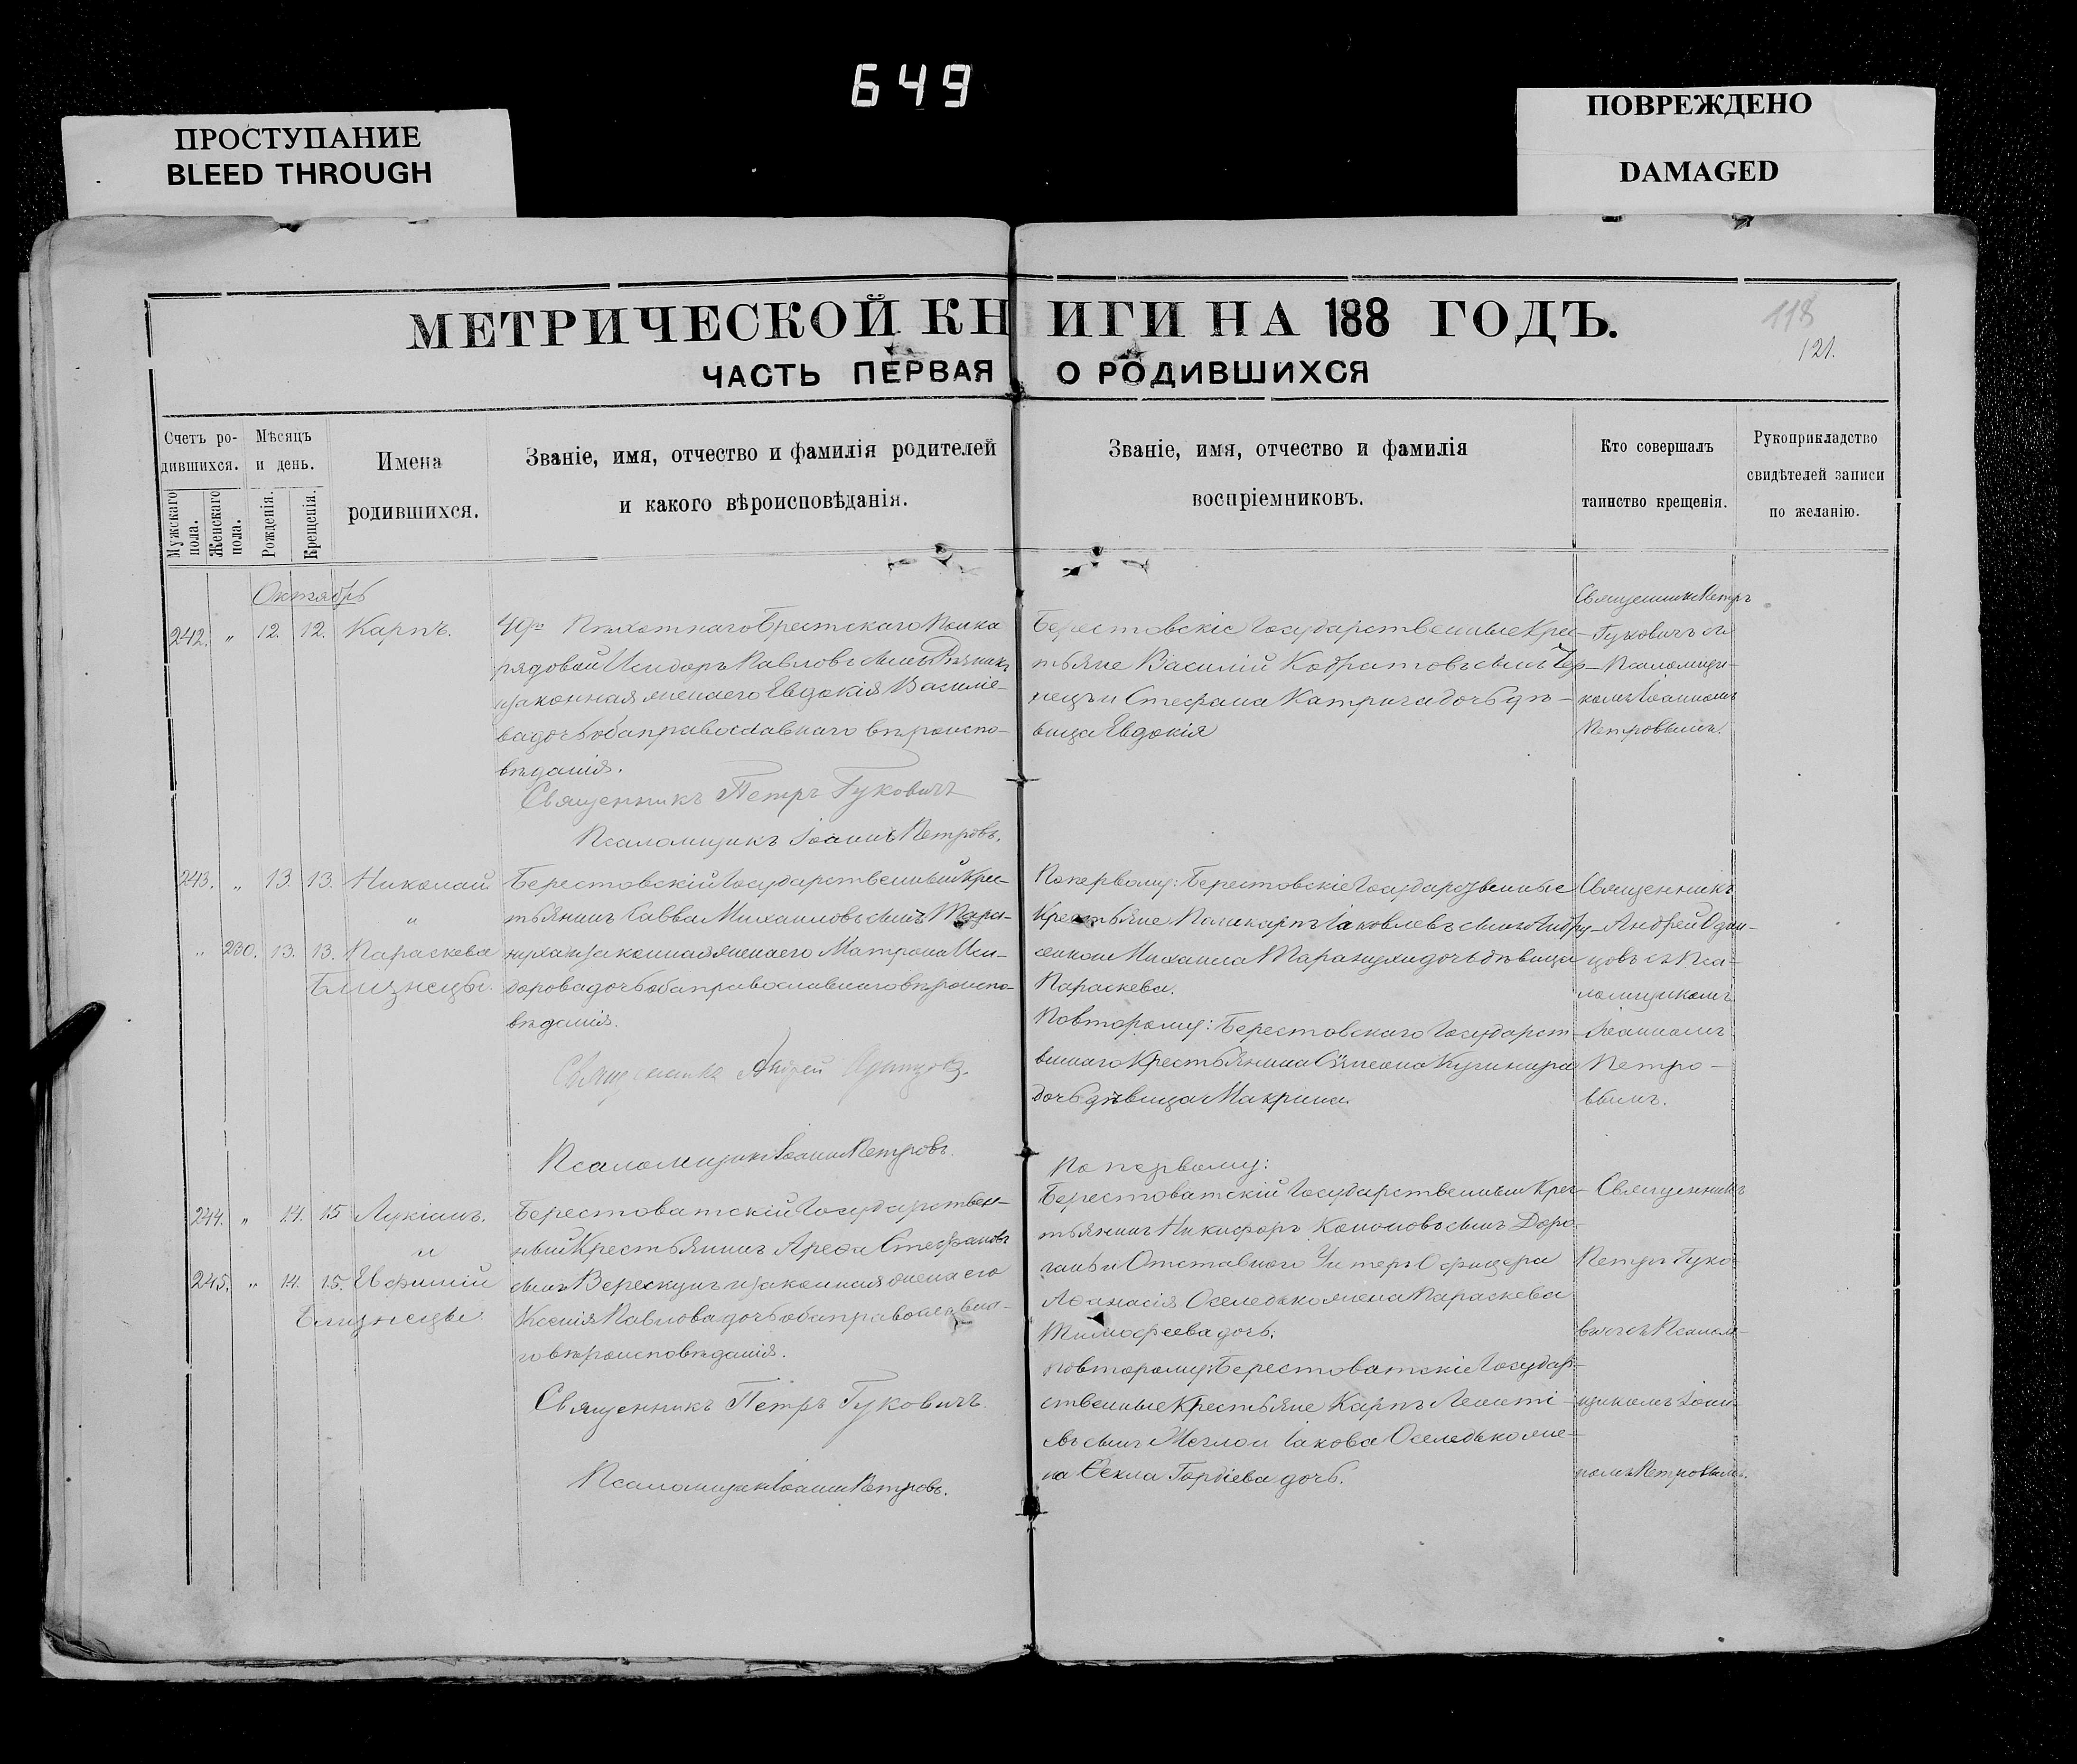 649
ПРОСТУПАНИЕ
BLEED THROUGH
ПОВРЕЖДЕНО
DAMAGED
МЕТРИЧЕСКОЙ КНИГИ НА 188 ГОДЪ.
118
121.
ЧАСТЬ ПЕРВАЯ О РОДИВШИХСЯ
Счетъ ро-
дившихся.
Мужскаго
пола.
Женскаго
пола.
Мѣсяцъ
и день.
Рожденія.
Крещенія.
Имена
родившихся.
Званіе, имя, отчество и фамилія родителей
и какого вѣроисповѣданія.
Званіе, имя, отчество и фамилія
воспріемниковъ.
Кто совершалъ
таинство крещенія.
Рукоприкладство
свидѣтелей записи
по желанію.
Октябрь
242. " 12. 12. Карпъ.
Пѣхотнаго Брестскаго Полка
рядовой Исидоръ Павловъ сынъ
и законная жена его Евдокія Василіе-
ва дочь оба православнаго вѣроиспо-
вѣданія.
Священникъ Петръ Гуковичъ
Псаломщикъ Іоаннъ Петровъ.
Берестовскіе Государственные Крес-
тьяне Василій Кодратовъ сынъ
и Стефана Катрича дочь дѣ-
вица Евдокія
Священникъ Петръ
Гуковичъ съ
Псаломщи-
комъ Іоанномъ
Петровымъ.
243. " 13. 13. Николай
"
" 230. 13. 13. Параскева
Близнецы.
Берестовскій Государственный Крес-
тьянинъ Савва Михаиловъ сынъ Тара-
и законная жена его Матрона Иси-
дорова дочь оба православнаго вѣроиспо-
вѣданія.
Священникъ Андрей Одинцовъ.
Псаломщикъ Іоаннъ Петровъ.
По первому: Берестовскіе Государственные
Крестьяне Поликарпъ Іаковлевъ сынъ Андру-
сенко и Михаила Таранухи дочь дѣвица
Параскева.
По второму: Берестовскаго Государст-
веннаго Крестьянина Симеона
дочь дѣвица Макрина.
Священникъ
Андрей Один-
цовъ съ Пса-
ломщикомъ
Іоанномъ
Петро-
вымъ.
244. " 14. 15 Лукіанъ.
"
245. " 14. 15. Евфимій
Близнецы.
Берестоватскій Государствен-
ный Крестьянинъ Арефа Стефановъ
сынъ Верескунъ и законная жена его
Ксенія Павлова дочь оба православна-
го вѣроисповѣданія.
Священникъ Петръ Гуковичъ.
Псаломщикъ Іоаннъ Петровъ.
По первому:
Берестоватскій Государственный Крес-
тьянинъ Никифоръ Кононовъ сынъ Доро-
гань и Отставного Унтеръ Офицера
Афанасія Оселедько жена Параскева
Тимофеева дочь.
По второму: Берестоватскіе Государ-
ственные Крестьяне Карпъ Леонтi-
евъ сынъ и Іакова Оселедько же-
на Ѳекла Гордіева дочь.
Священникъ
Петръ Гуко-
вичъ съ Псалом-
щикомъ Іоан-
номъ Петровымъ.